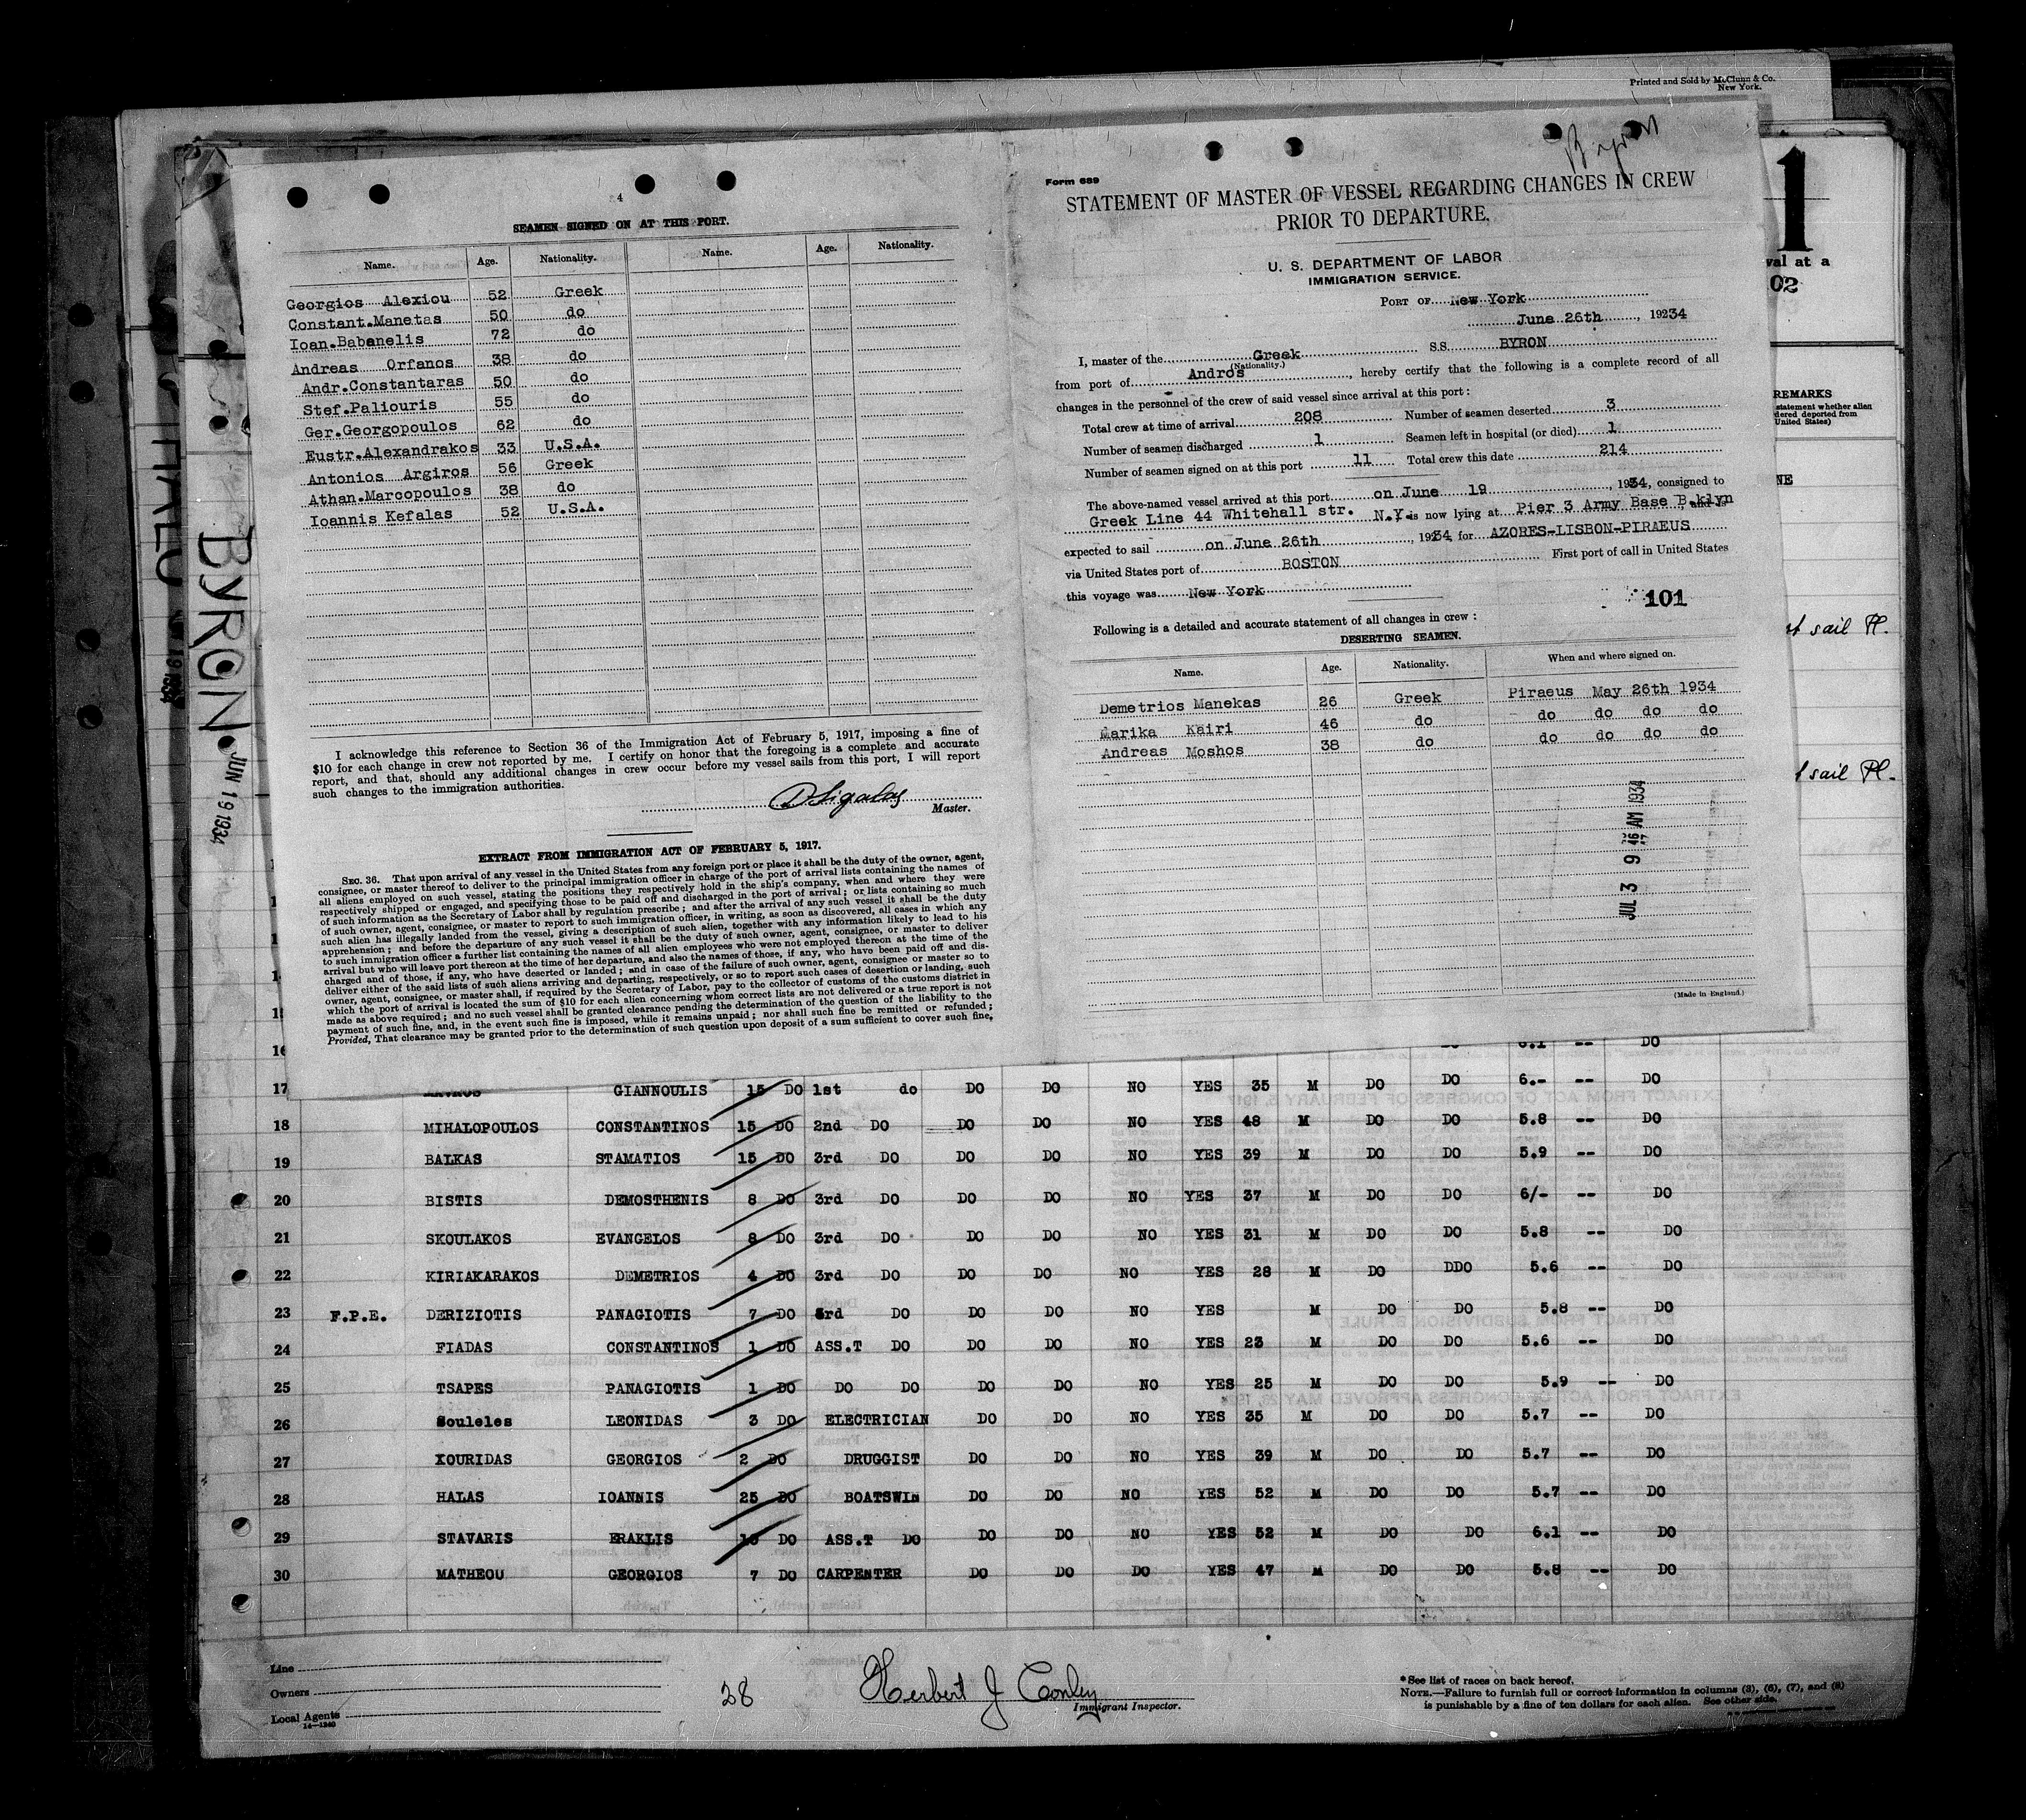 Printed and Sold by McClunn & Co.
New York.
4
SEAMEN SIGNED ON AT THIS PORT.
Name. Age. Nationality. Name. Age. Nationality.
Georgios Alexiou 52 Greek
Constant.Manetas 50 do
Ioan.Babanelis 72 do
Andreas Orfanos 38 do
Andr.Constantaras 50 do
Stef.Paliouris 55 do
Ger.Georgopoulos 62 do
Eustr.Alexandrakos 33 U.S.A.
Antonios Argiros 56 Greek
Athan.Marcopoulos 38 do
Ioannis Kefalas 52 U.S.A.
I acknowledge this reference to Section 36 of the Immigration Act of February 5, 1917, imposing a fine of
$10 for each change in crew not reported by me. I certify on honor that the foregoing is a complete and accurate
report, and that, should any additional changes in crew occur before my vessel sails from this port, I will report
such changes to the immigration authorities.
DSigalas
Master.
EXTRACT FROM IMMIGRATION ACT OF FEBRUARY 5, 1917.
SEC. 36. That upon arrival of any vessel in the United States from any foreign port or place it shall be the duty of the owner, agent,
consignee, or master thereof to deliver to the principal immigration officer in charge of the port of arrival lists containing the names of
all aliens employed on such vessel, stating the positions they respectively hold in the ship's company, when and where they were
respectively shipped or engaged, and specifying those to be paid off and discharged in the port of arrival; or lists containing so much
of such information as the Secretary of Labor shall by regulation prescribe; and after the arrival of any such vessel it shall be the duty
of such owner, agent, consignee, or master to report to such immigration officer, in writing, as soon as discovered, all cases in which any
such alien has illegally landed from the vessel, giving a description of such alien, together with any information likely to lead to his
apprehension; and before the departure of any such vessel it shall be the duty of such owner, agent, consignee, or master to deliver
to such immigration officer a further list containing the names of all alien employees who were not employed thereon at the time of the
arrival but who will leave port thereon at the time of her departure, and also the names of those, if any, who have been paid off and dis-
charged and of those, if any, who have deserted or landed; and in case of the failure of such owner, agent, consignee or master so to
deliver either of the said lists of such aliens arriving and departing, respectively, or so to report such cases of desertion or landing, such
owner, agent, consignee, or master shall, if required by the Secretary of Labor, pay to the collector of customs of the customs district in
which the port of arrival is located the sum of $10 for each alien concerning whom correct lists are not delivered or a true report is not
made as above required; and no such vessel shall be granted clearance pending the determination of the question of the liability to the
payment of such fine, and, in the event such fine is imposed, while it remains unpaid; nor shall such fine be remitted or refunded;
Provided, That clearance may be granted prior to the determination of such question upon deposit of a sum sufficient to cover such fine.
Byron
Form 689
STATEMENT OF MASTER OF VESSEL REGARDING CHANGES IN CREW
PRIOR TO DEPARTURE.
U. S. DEPARTMENT OF LABOR
IMMIGRATION SERVICE.
PORT OF New York
June 26th, 19234
I, master of the Greek S.S. BYRON
(Nationality.)
from port of Andros, hereby certify that the following is a complete record of all
changes in the personnel of the crew of said vessel since arrival at this port:
Total crew at time of arrival 208 Number of seamen deserted 3
Number of seamen discharged 1 Seamen left in hospital (or died) 1
Number of seamen signed on at this port 11 Total crew this date 214
The above-named vessel arrived at this port on June 19, 1934, consigned to
Greek Line 44 Whitehall str. N.Y. is now lying at Pier 3 Army Base B.klyn, and is
expected to sail on June 26th, 19234 for AZORES-LISBON-PIRAEUS
via United States port of BOSTON First port of call in United States
this voyage was New York
101
Following is a detailed and accurate statement of all changes in crew:
DESERTING SEAMEN.
Name. Age. Nationality. When and where signed on.
Demetrios Manekas 26 Greek Piraeus May 26th 1934
Marika Kairi 46 do do do do do
Andreas Moshos 38 do do do do do
JUL 3 9 46 AM 1934
(Made in England.)
1
val at a
02
REMARKS
statement whether alien
dered deported from
United States)
NE
t sail Pl.
t sail Pl.
BYRON
JUN 19 1934
16 6.1 -- DO
17 GIANNOULIS 15 DO 1st do DO DO NO YES 35 M DO DO 6.- -- DO
18 MIHALOPOULOS CONSTANTINOS 15 DO 2nd DO DO DO NO YES 48 M DO DO 5.8 -- DO
19 BALKAS STAMATIOS 15 DO 3rd DO DO DO NO YES 39 M DO DO 5.9 -- DO
20 BISTIS DEMOSTHENIS 8 DO 3rd DO DO DO NO YES 37 M DO DO 6/- -- DO
21 SKOULAKOS EVANGELOS 8 DO 3rd DO DO DO NO YES 31 M DO DO 5.8 -- DO
22 KIRIAKARAKOS DEMETRIOS 4 DO 3rd DO DO DO NO YES 28 M DO DDO 5.6 -- DO
23 F.P.E. DERIZIOTIS PANAGIOTIS 7 DO 3rd DO DO DO NO YES M DO DO 5.8 -- DO
24 FIADAS CONSTANTINOS 1 DO ASS.T DO DO DO NO YES 23 M DO DO 5.6 -- DO
25 TSAPES PANAGIOTIS 1 DO DO DO DO DO NO YES 25 M DO DO 5.9 -- DO
26 Souleles LEONIDAS 3 DO ELECTRICIAN DO DO NO YES 35 M DO DO 5.7 -- DO
27 XOURIDAS GEORGIOS 2 DO DRUGGIST DO DO NO YES 39 M DO DO 5.7 -- DO
28 HALAS IOANNIS 25 DO BOATSWIN DO DO NO YES 52 M DO DO 5.7 -- DO
29 STAVARIS ERAKLIS DO ASS.T DO DO DO NO YES 52 M DO DO 6.1 -- DO
30 MATHEOU GEORGIOS 7 DO CARPENTER DO DO DO YES 47 M DO DO 5.8 -- DO
Line
Owners
Local Agents
14—1240
28
Herbert J Conley
Immigrant Inspector.
*See list of races on back hereof.
NOTE.—Failure to furnish full or correct information in columns (3), (6), (7), and (8)
is punishable by a fine of ten dollars for each alien. See other side.